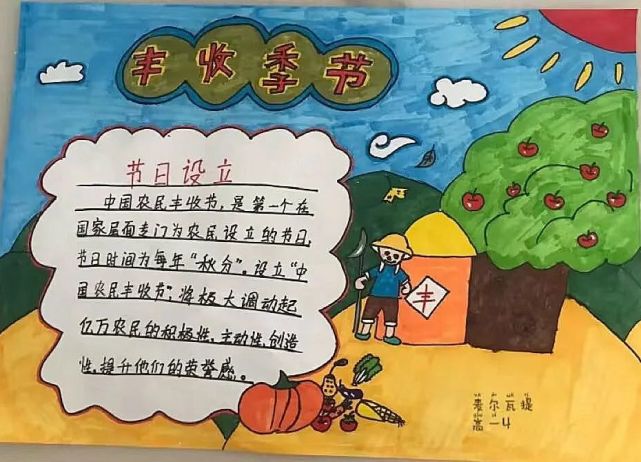 丰收季节
节日设立
中国农民丰收节，是第一个在
国家层面专门为农民设立的节日，
节日时间为每年“秋分”。设立“中
国农民丰收节”，将极大调动起
亿万农民的积极性、主动性、创造
性，提升他们的荣誉感。
丰
麦尔瓦提
高一4